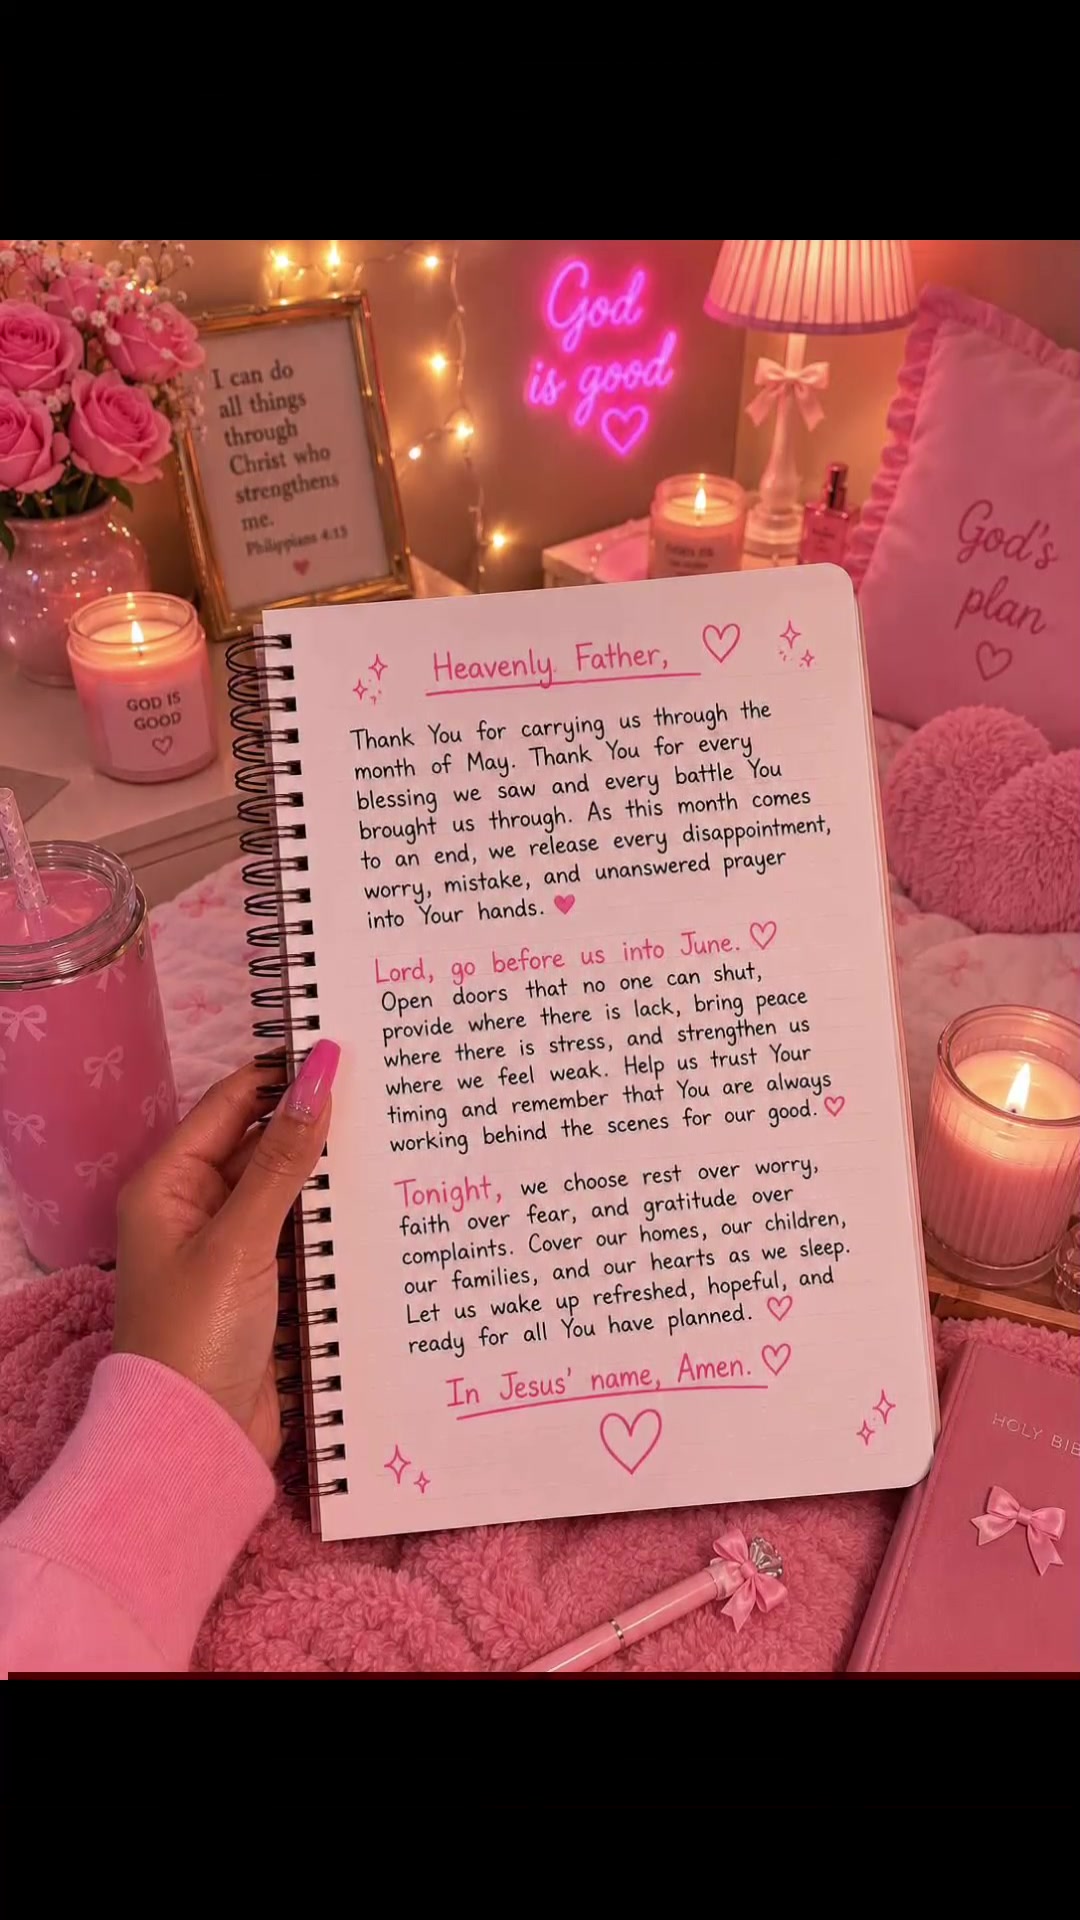 I can do
all things
through
Christ who
strengthens
me.
Philippians 4:13
God
is good
God's
plan
GOD IS
GOOD
Heavenly Father,
Thank You for carrying us through the
month of May. Thank You for every
blessing we saw and every battle You
brought us through. As this month comes
to an end, we release every disappointment,
worry, mistake, and unanswered prayer
into Your hands.
Lord, go before us into June.
Open doors that no one can shut,
provide where there is lack, bring peace
where there is stress, and strengthen us
where we feel weak. Help us trust Your
timing and remember that You are always
working behind the scenes for our good.
Tonight, we choose rest over worry,
faith over fear, and gratitude over
complaints. Cover our homes, our children,
our families, and our hearts as we sleep.
Let us wake up refreshed, hopeful, and
ready for all You have planned.
In Jesus' name, Amen.
HOLY BIB